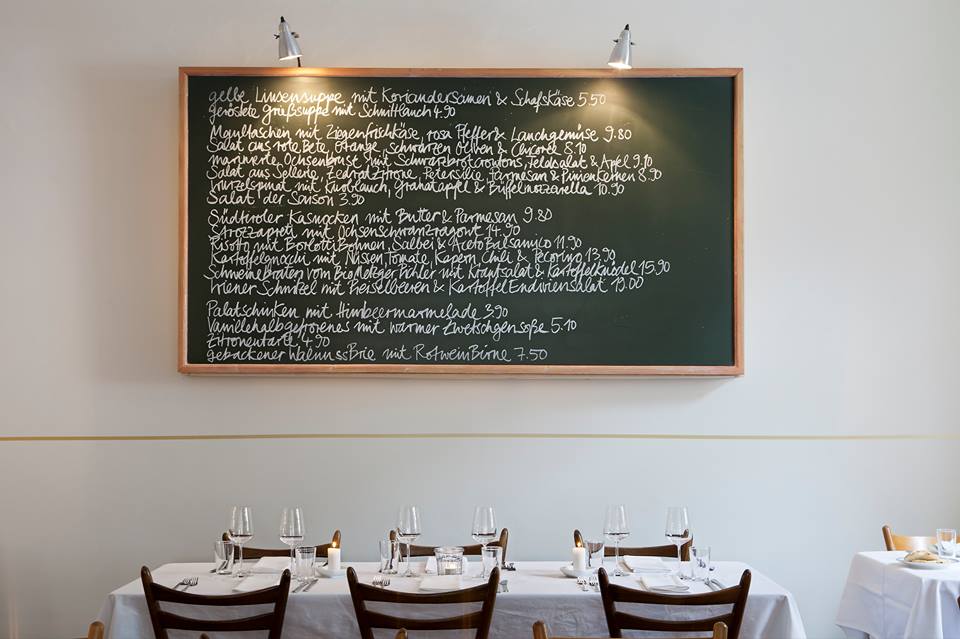 gelbe Linsensuppe mit Koriandersamen & Schafskäse 5.50
geröstete Grießsuppe mit Schnittlauch 4.90
Maultaschen mit Ziegenfrischkäse, rosa Pfeffer & Lauchgemüse 9.80
Salat aus rote Bete, Orange, schwarzen Oliven & Cicoree 8.10
marinierte Ochsenbrust mit Schwarzbrotcroutons, Feldsalat & Apfel 9.10
Salat aus Sellerie, Zedratzitrone, Petersilie, Parmesan & Pinienkernen 8.90
Wurzelspinat mit Knoblauch, Granatapfel & Büffelmozzarella 10.90
Salat der Saison 3.90
Südtiroler Kasnocken mit Butter & Parmesan 9.80
Strozzapreti mit Ochsenschwanzragout 14.90
Risotto mit Borlotti Bohnen, Salbei & Aceto Balsamico 11.90
Kartoffelgnocchi mit Nüssen, Tomate, Kapern, Chili & Pecorino 13.90
Schweinebraten vom BioMetzger Pichler mit Krautsalat & Kartoffelknödel 15.90
Wiener Schnitzel mit Preiselbeeren & KartoffelEndiviensalat 19.00
Palatschinken mit Himbeermarmelade 3.90
Vanillehalbgefrorenes mit warmer Zwetschgensoße 5.10
Zitronentarte 4.90
gebackener WalnussBrie mit RotweinBirne 7.50